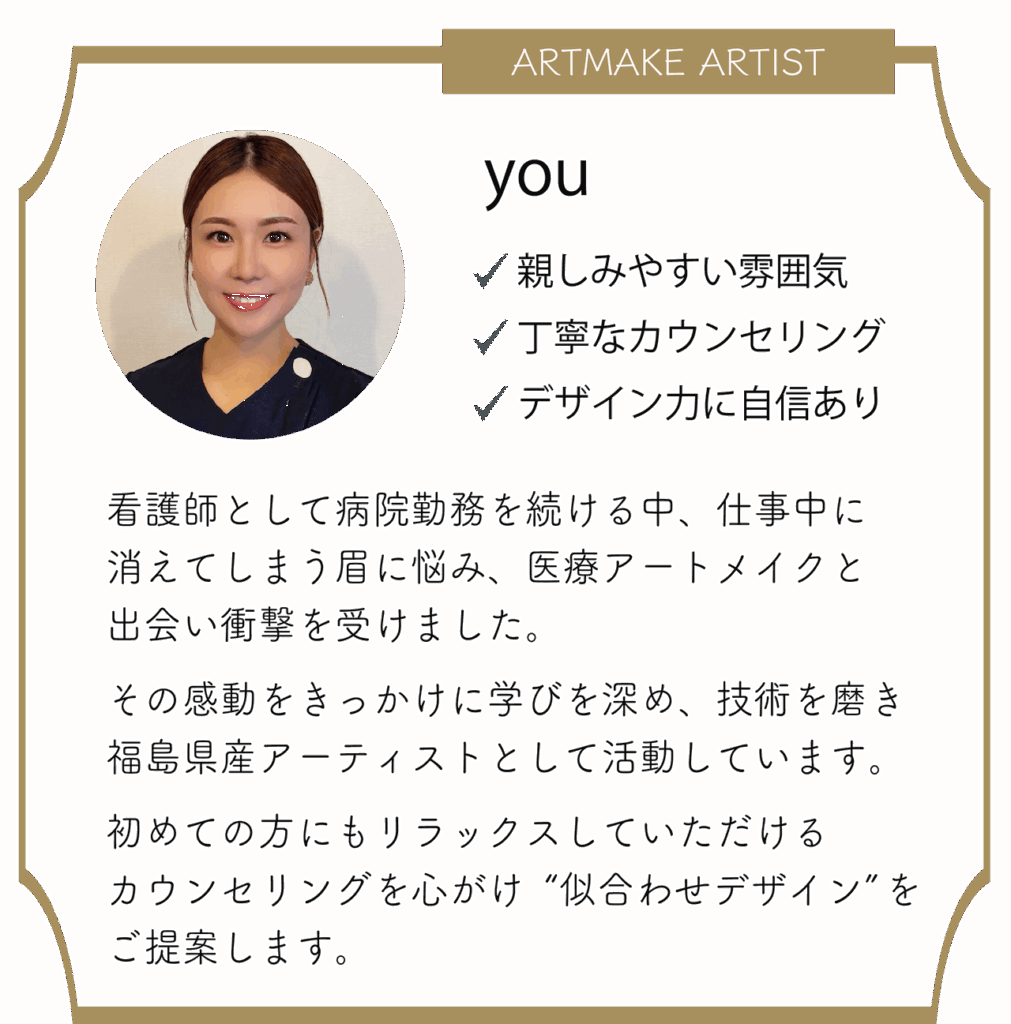 ARTMAKE ARTIST
you
親しみやすい雰囲気
丁寧なカウンセリング
デザイン力に自信あり
看護師として病院勤務を続ける中、仕事中に
消えてしまう眉に悩み、医療アートメイクと
出会い衝撃を受けました。
その感動をきっかけに学びを深め、技術を磨き
福島県産アーティストとして活動しています。
初めての方にもリラックスしていただける
カウンセリングを心がけ “似合わせデザイン” を
ご提案します。